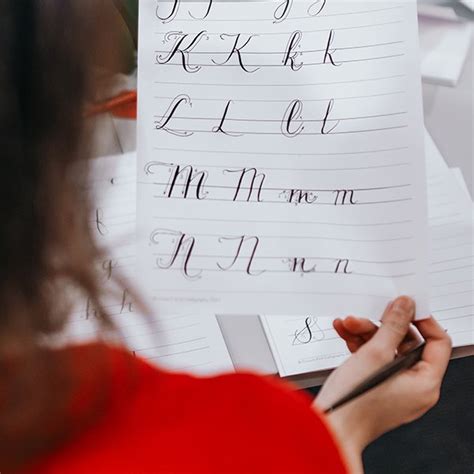 K K k k
L L l l
M M m m
N N n n
g
h
S